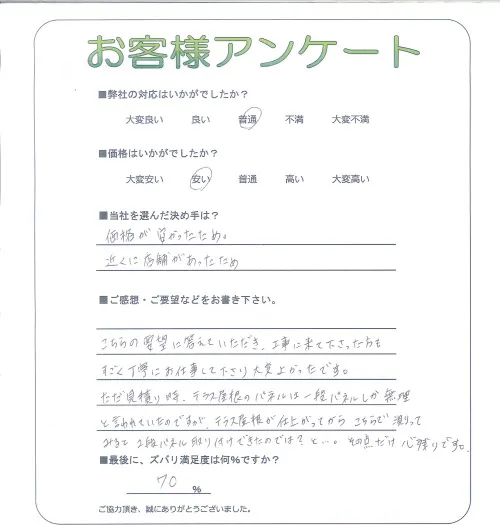 お客様アンケート
■弊社の対応はいかがでしたか?
大変良い 良い 普通 不満 大変不満
■価格はいかがでしたか?
大変安い 安い 普通 高い 大変高い
■当社を選んだ決め手は?
価格が良かったため。
近くに店舗があったため
■ご感想・ご要望などをお書き下さい。
こちらの要望に答えていただき、工事に来て下さった方も
すごく丁寧にお仕事して下さり大変よかったです。
ただ見積り時、テラス屋根のパネルは一段パネルしか無理
と言われていたのですが、テラス屋根が仕上がってからこちらで測って
みると2段パネル取り付けできたのでは?と…。その点だけ心残りです。
■最後に、ズバリ満足度は何%ですか?
70 %
ご協力頂き、誠にありがとうございました。